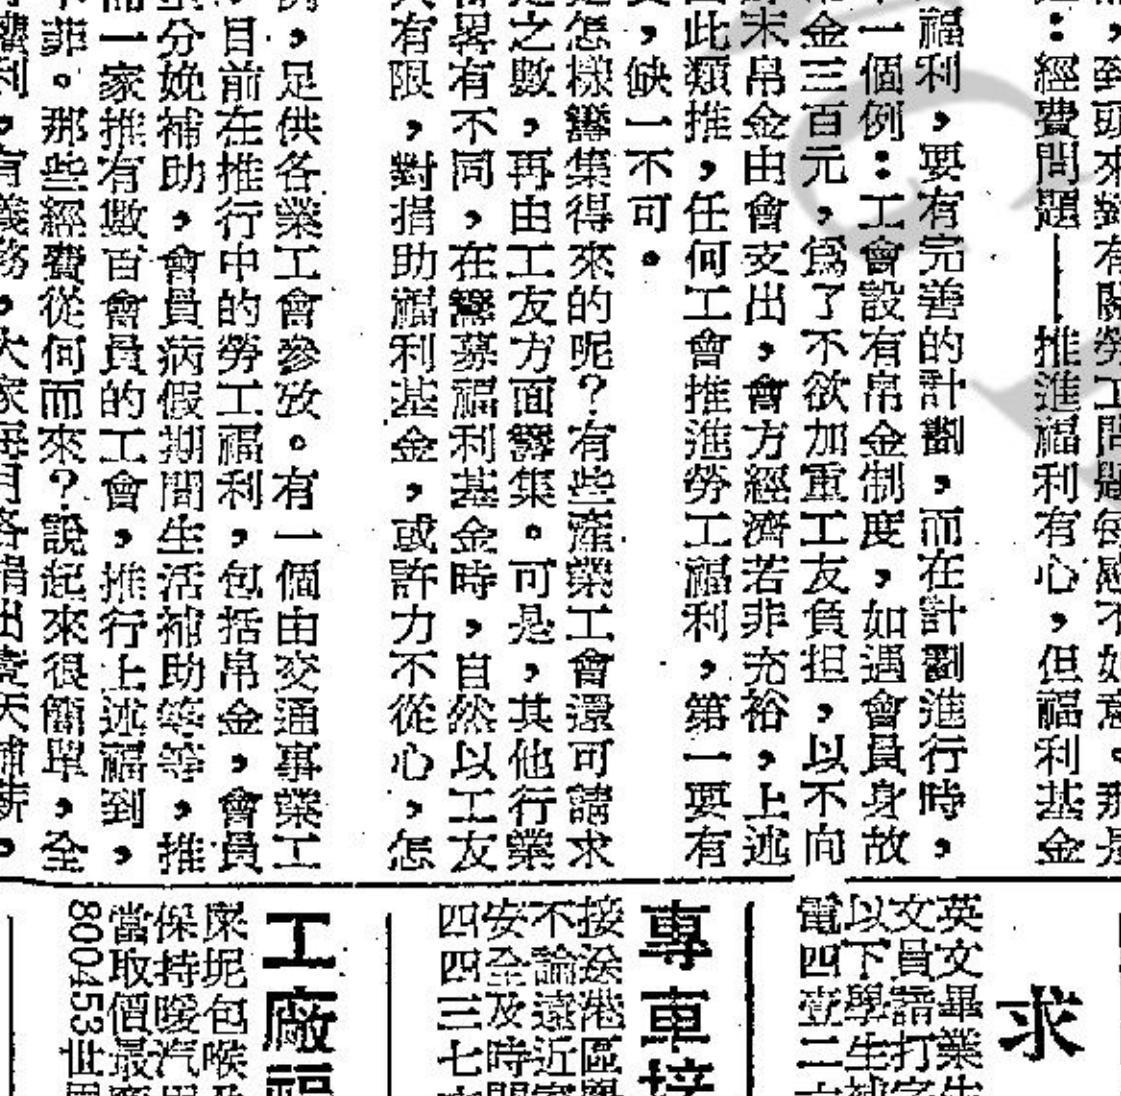 到頭來對有關勞工問題每感不如意。那是
：經費問題——推進福利有心，但福利基金
福利，要有完善的計劃，而在計劃進行時，
一個例：工會設有帛金制度，如遇會員身故
金三百元，爲了不欲加重工友負担，以不向
末帛金由會支出，會方經濟若非充裕，上述
此類推，任何工會推進勞工福利，第一要有
，缺一不可。
怎樣籌集得來的呢？有些產業工會還可請求
之數，再由工友方面籌集。可是，其他行業
畧有不同，在籌募福利基金時，自然以工友
有限，對捐助福利基金，或許力不從心，怎
，足供各業工會參攷。有一個由交通事業工
目前在推行中的勞工福利，包括帛金，會員
分娩補助，會員病假期間生活補助等等，推
一家推有數百會員的工會，推行上述福到，
菲。那些經費從何而來？說起來很簡單，全
權利，有義務，大家每月各捐出壹天補薪，
求
英文畢業生
文員諳打字
以下學生補
電四壹二六
專車接
接送港區學
不論遠近
安全及時間
四四三七
工廠福
屎坭包喉及
保持暖汽用
當取價最
800453世界